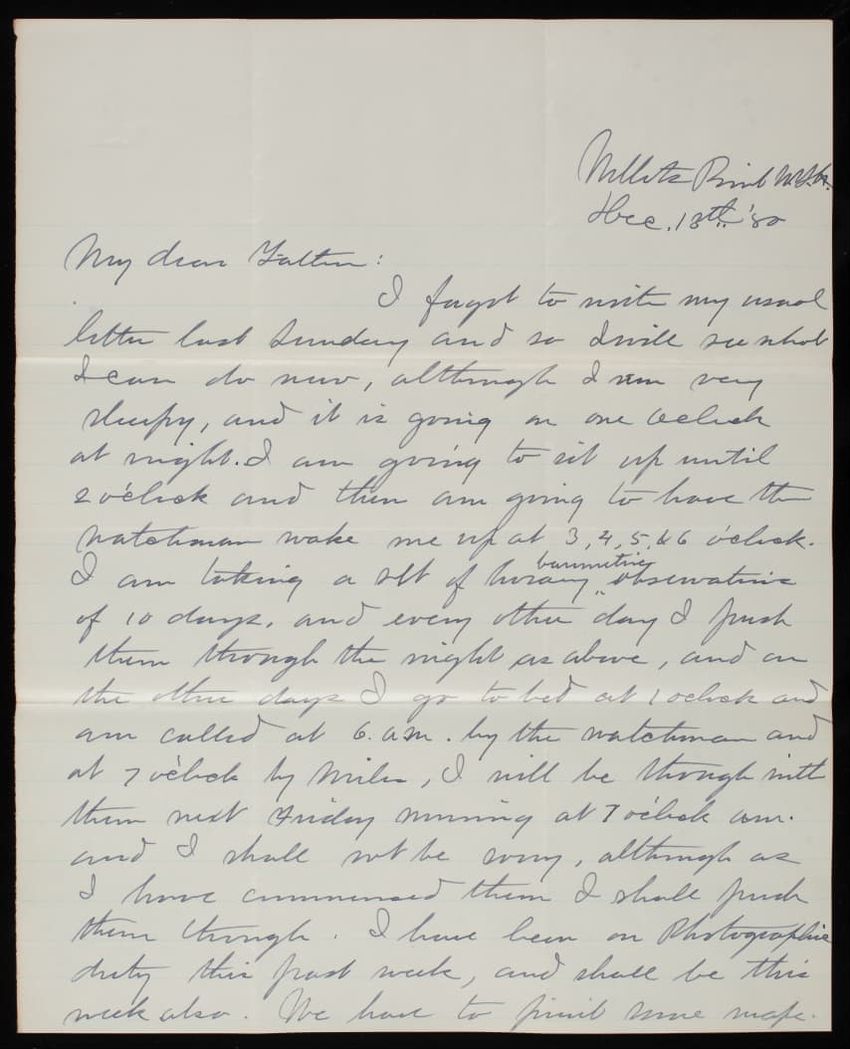 Willets Point N.Y.H.
Dec. 13th '80
My dear Father:
I forgot to write my usual
letter last Sunday and so I will see what
I can do now, although I am very
sleepy, and it is going on one o'clock
at night. I am going to sit up until
2 o'clock and then am going to have the
watchman wake me up at 3, 4, 5, & 6 o'clock.
I am taking a set of horary barometric observations
of 10 days, and every other day I push
them through the night as above, and on
the other days I go to bed at 1 o'clock and
am called at 6. a.m. by the watchman and
at 7 o'clock by Miles, I will be through with
them next Friday morning at 7 o'clock a.m.
and I shall not be sorry, although as
I have commenced them I shall push
them through. I have been on Photographic
duty this past week, and shall be this
week also. We have to print some maps.